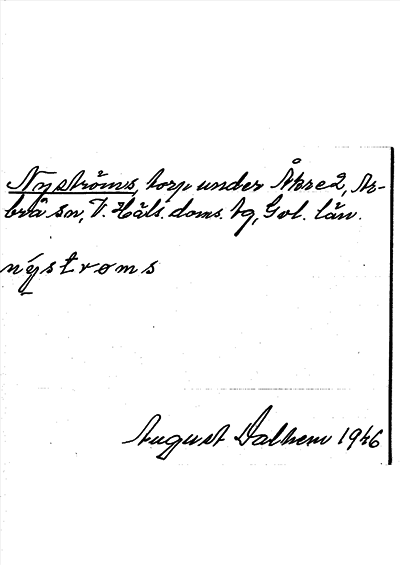 Nyströms, torp under Åkre 2, Ar-
brå sn, V. Häls. doms. tg, Gvl. län.
nýstrøms
August Dalhem 1946